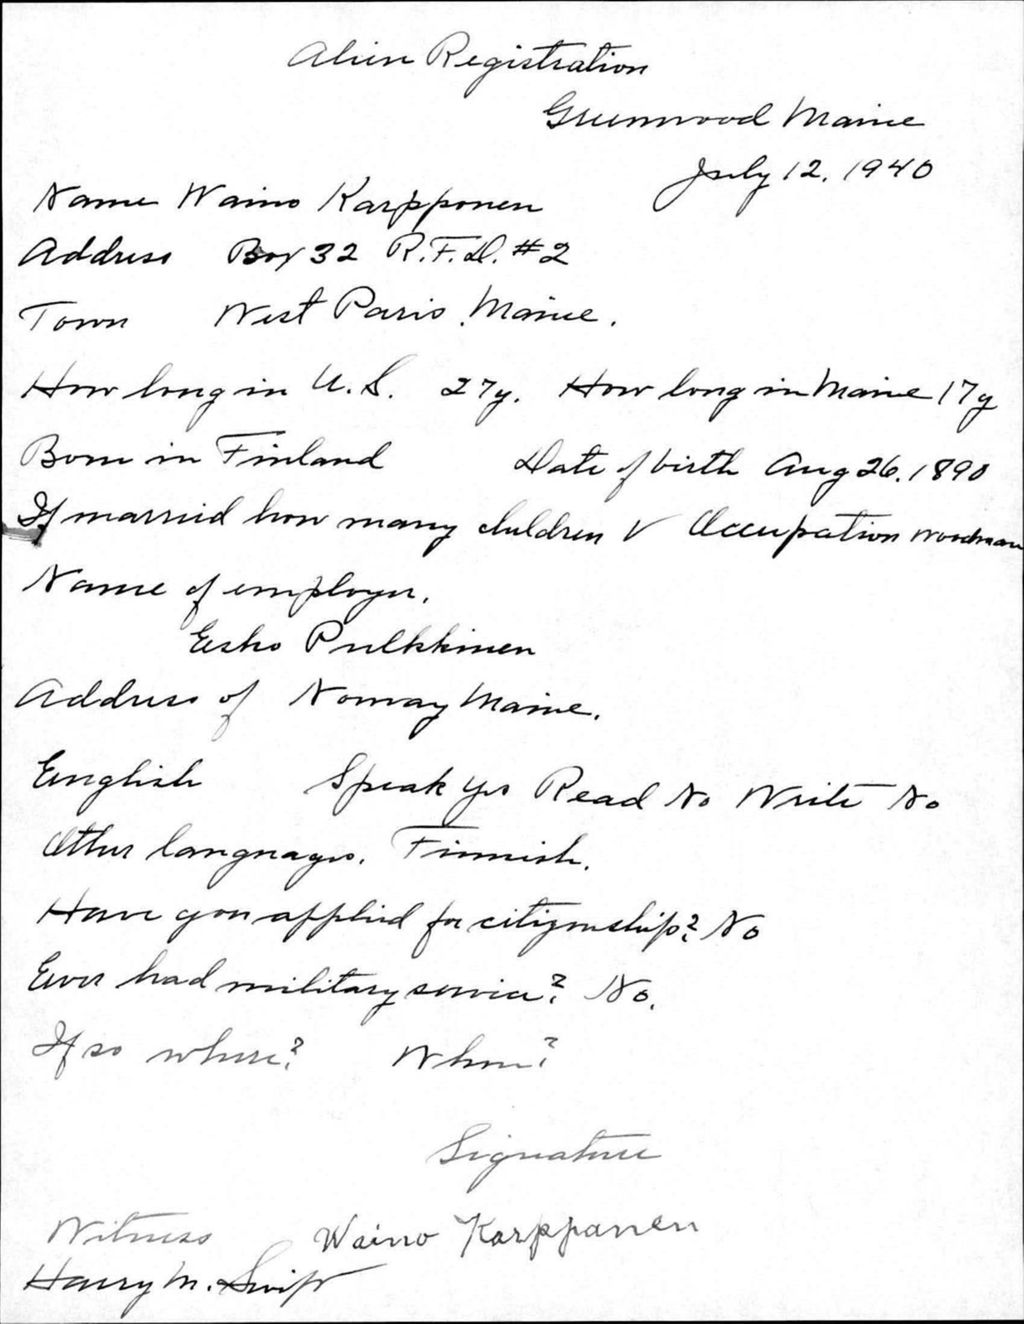 Alien Registration
Greenwood Maine
July 12, 1940
Name Waino Karpponen
Address Box 32 R.F.D. #2
Town West Paris, Maine.
How long in U.S. 27y. How long in Maine 17y
Born in Finland Date of birth Aug 26, 1890
If married how many children V Occupation Woodman
Name of employer.
Esko Pulkkinen
Address of Norway Maine.
English Speak Yes Read No Write No
Other languages. Finnish.
Have you applied for citizenship? No
Ever had military service? No.
If so where? When?
Signature
Witness Waino Karppanen
Harry M. Swift